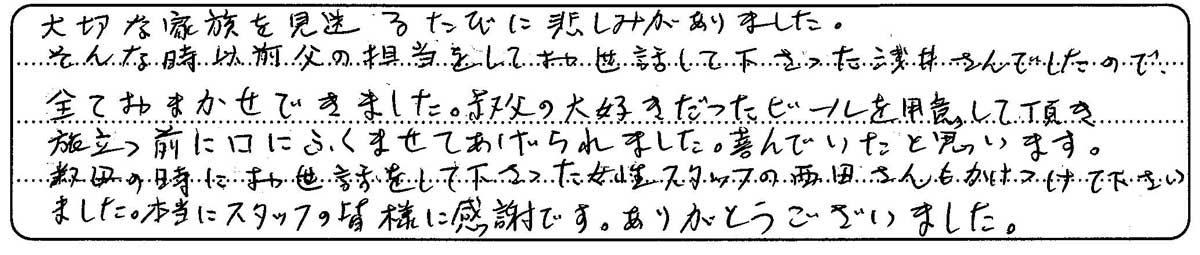 大切な家族を見送るたびに悲しみがありました。
そんな時以前父の担当をしてお世話して下さった浅井さんでしたので、
全ておまかせできました。叔父の大好きだったビールを用意して頂き
旅立つ前に口にふくませてあげられました。喜んでいたと思います。
数回の時にお世話をして下さった女性スタッフの西田さんもかけつけて下さい
ました。本当にスタッフの皆様に感謝です。ありがとうございました。